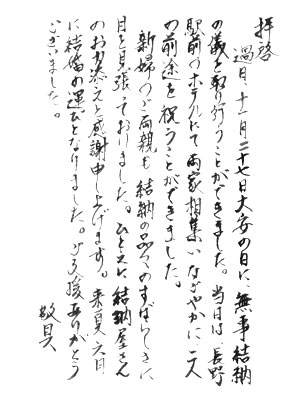 拝啓
過日、十一月二十七日大安の日に、無事結納
の儀を取り行うことができました。当日は、長野
駅前のホテルにて両家相集い、なごやかに二人
の前途を祝うことができました。
新婦のご両親も、結納の品々のすばらしさに
目を見張っておりました。ひとえに結納屋さん
のお力添えと感謝申し上げます。来夏六月
に結婚の運びとなりました。ご支援ありがとう
ございました。
敬具